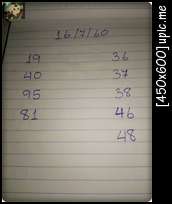 16/7/60
19 36
40 37
95 38
81 46
48
[450x600] upic.me